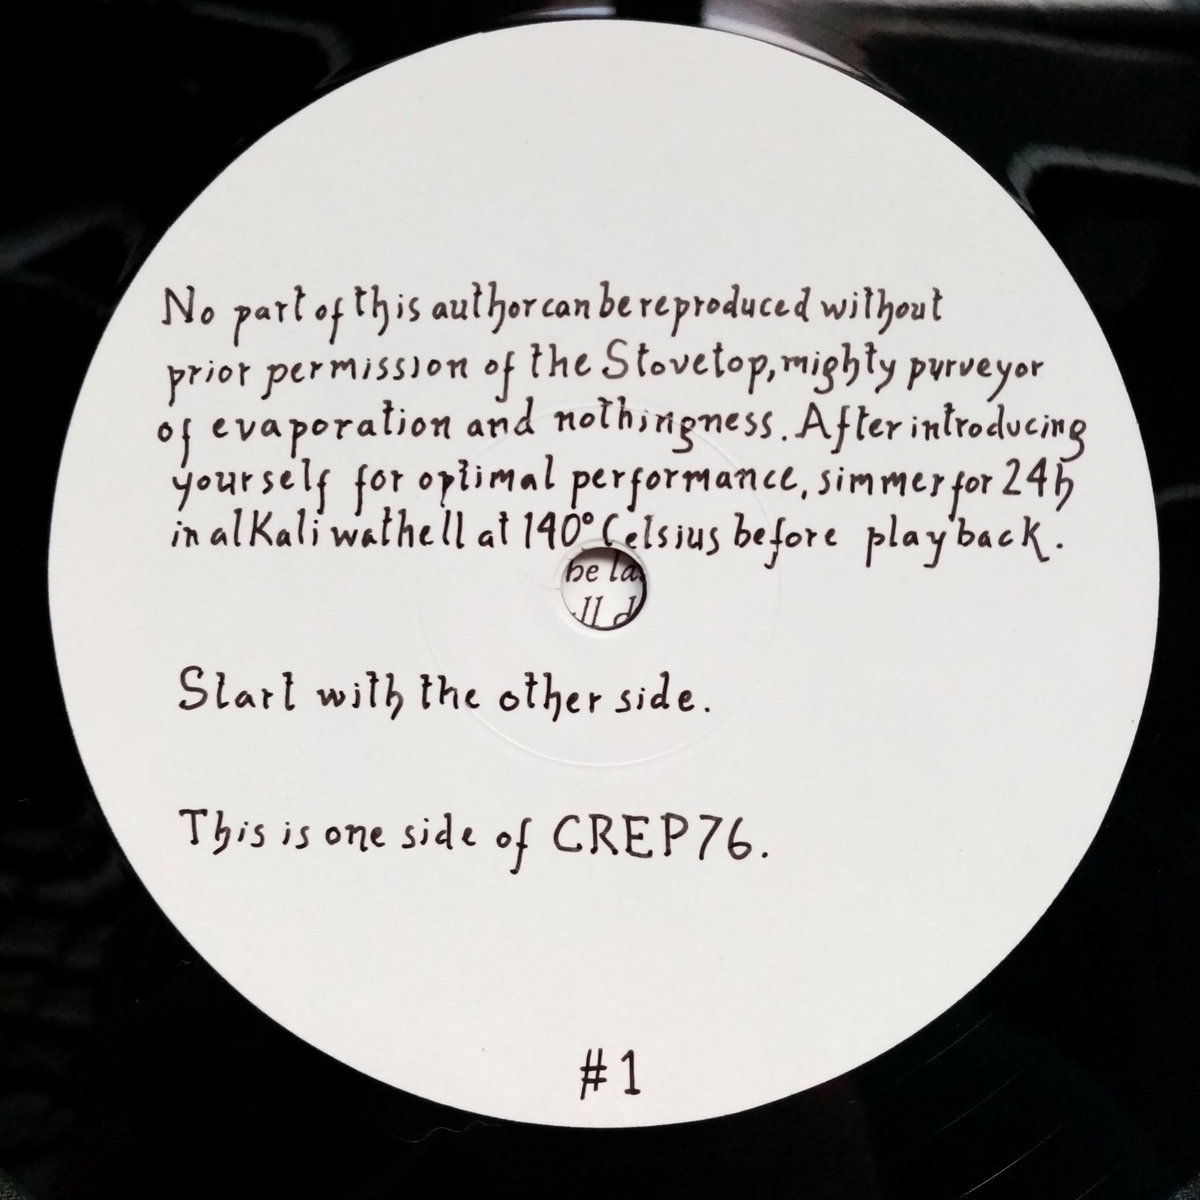 No part of this author can be reproduced without
prior permission of the Stovetop, mighty purveyor
of evaporation and nothingness. After introducing
yourself for optimal performance, simmer for 24h
in alkali wathell at 140° Celsius before playback.
be la
ll d
Start with the other side.
This is one side of CREP76.
#1